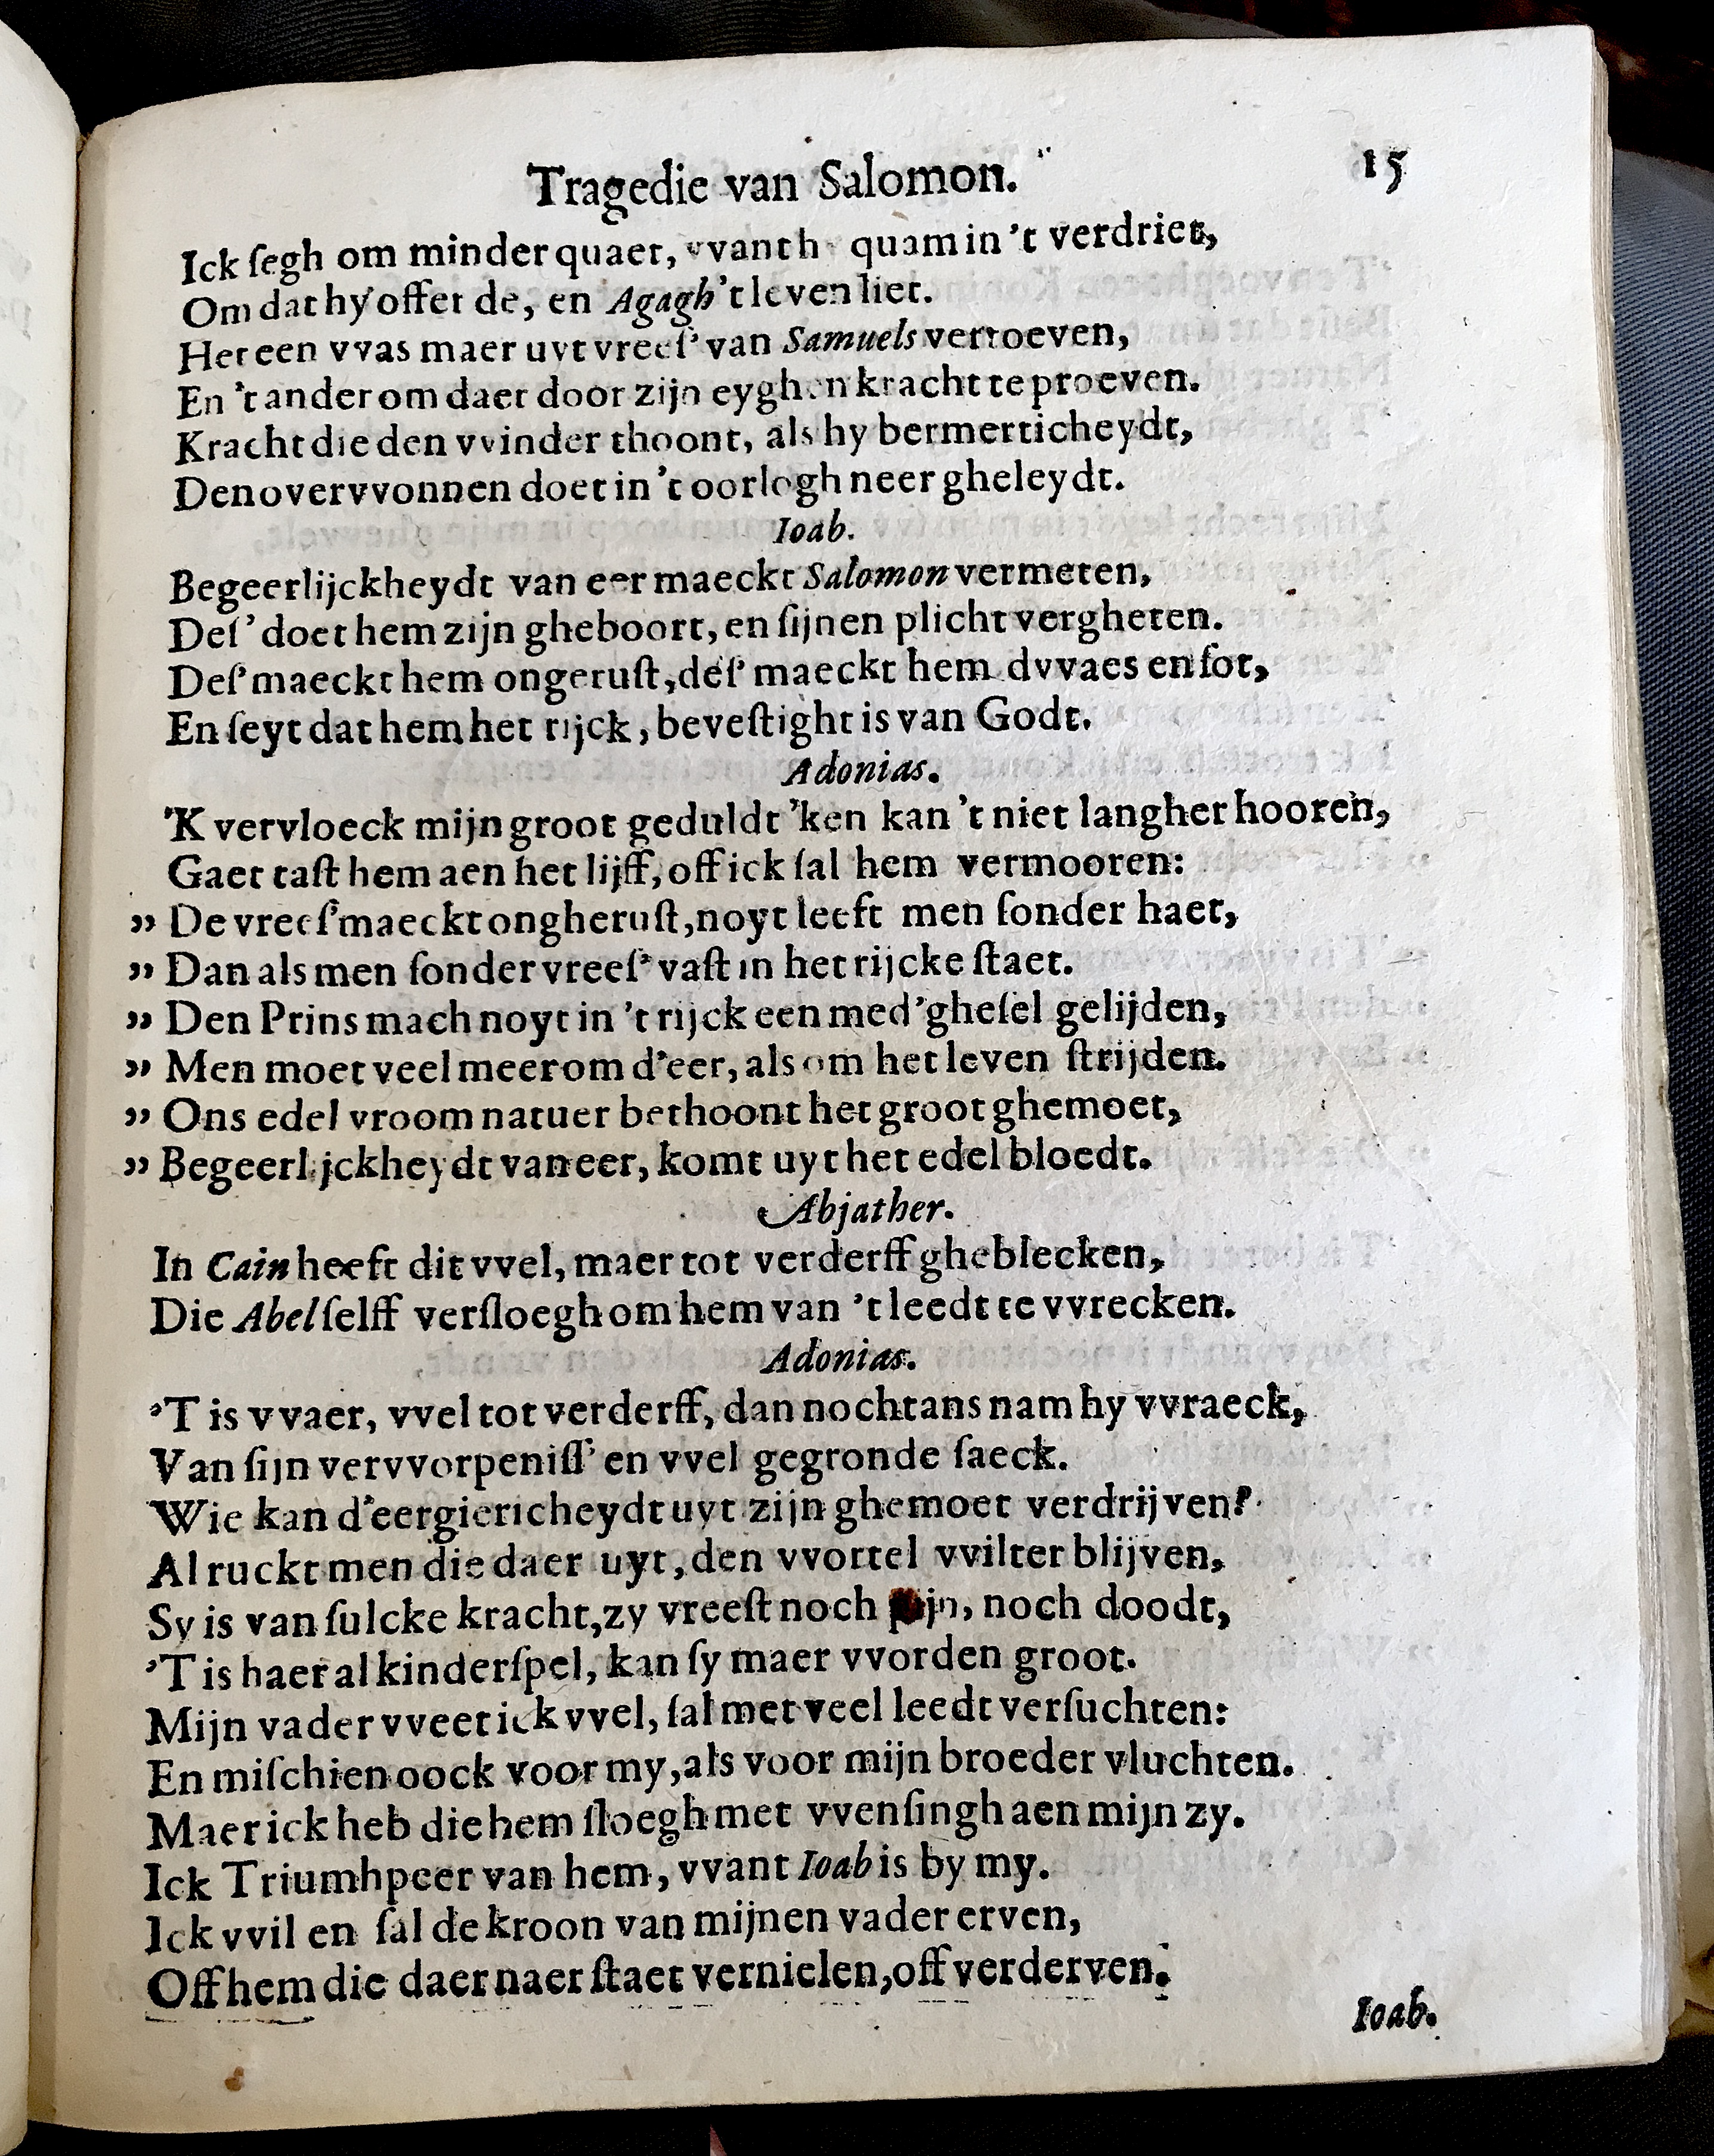 Tragedie van Salomon. 15
Ick ſegh om minder quaet, vvant h quam in 't verdriet,
Om dat hy offer de, en Agagh 't leven liet.
Het een vvas maer uyt vreeſ' van Samuels vertoeven,
En 't ander om daer door zijn eyghen kracht te proeven.
Kracht die den vvinder thoont, als hy bermerticheydt,
Den overvvonnen doet in 't oorlogh neer gheleydt.
Ioab.
Begeerlijckheydt van eer maeckt Salomon vermeten,
Deſ' doet hem zijn gheboort, en ſijnen plicht vergheten.
Deſ' maeckt hem ongeruſt, deſ' maeckt hem dvvaes en ſot,
En ſeyt dat hem het rijck, beveſtight is van Godt.
Adonias.
'K vervloeck mijn groot geduldt 'ken kan 't niet langher hooren,
Gaet taſt hem aen het lijff, off ick ſal hem vermooren:
„ De vreeſ' maeckt ongheruſt, noyt leeft men ſonder haet,
„ Dan als men ſonder vreeſ' vaſt in het rijcke ſtaet.
„ Den Prins mach noyt in 't rijck een med'gheſel gelijden,
„ Men moet veel meer om d'eer, als om het leven ſtrijden.
„ Ons edel vroom natuer bethoont het groot ghemoet,
„ Begeerlijckheydt van eer, komt uyt het edel bloedt.
Abjather.
In Cain heeft dit vvel, maer tot verderff ghebleecken,
Die Abel ſelff verſloegh om hem van 't leedt te vvrecken.
Adonias.
'T is vvaer, vvel tot verderff, dan nochtans nam hy vvraeck,
Van ſijn vervvorpeniſſ' en vvel gegronde ſaeck.
Wie kan d'eergiericheydt uyt zijn ghemoet verdrijven?
Al ruckt men die daer uyt, den vvortel vvilter blijven,
Sy is van ſulcke kracht, zy vreeſt noch pijn, noch doodt,
'T is haer al kinderſpel, kan ſy maer vvorden groot.
Mijn vader vveet ick vvel, ſal met veel leedt verſuchten:
En miſchien oock voor my, als voor mijn broeder vluchten.
Maer ick heb die hem ſloegh met vvenſingh aen mijn zy.
Ick Triumhpeer van hem, vvant Ioab is by my.
Ick vvil en ſal de kroon van mijnen vader erven,
Off hem die daer naer ſtaet vernielen, off verderven.
Ioab.